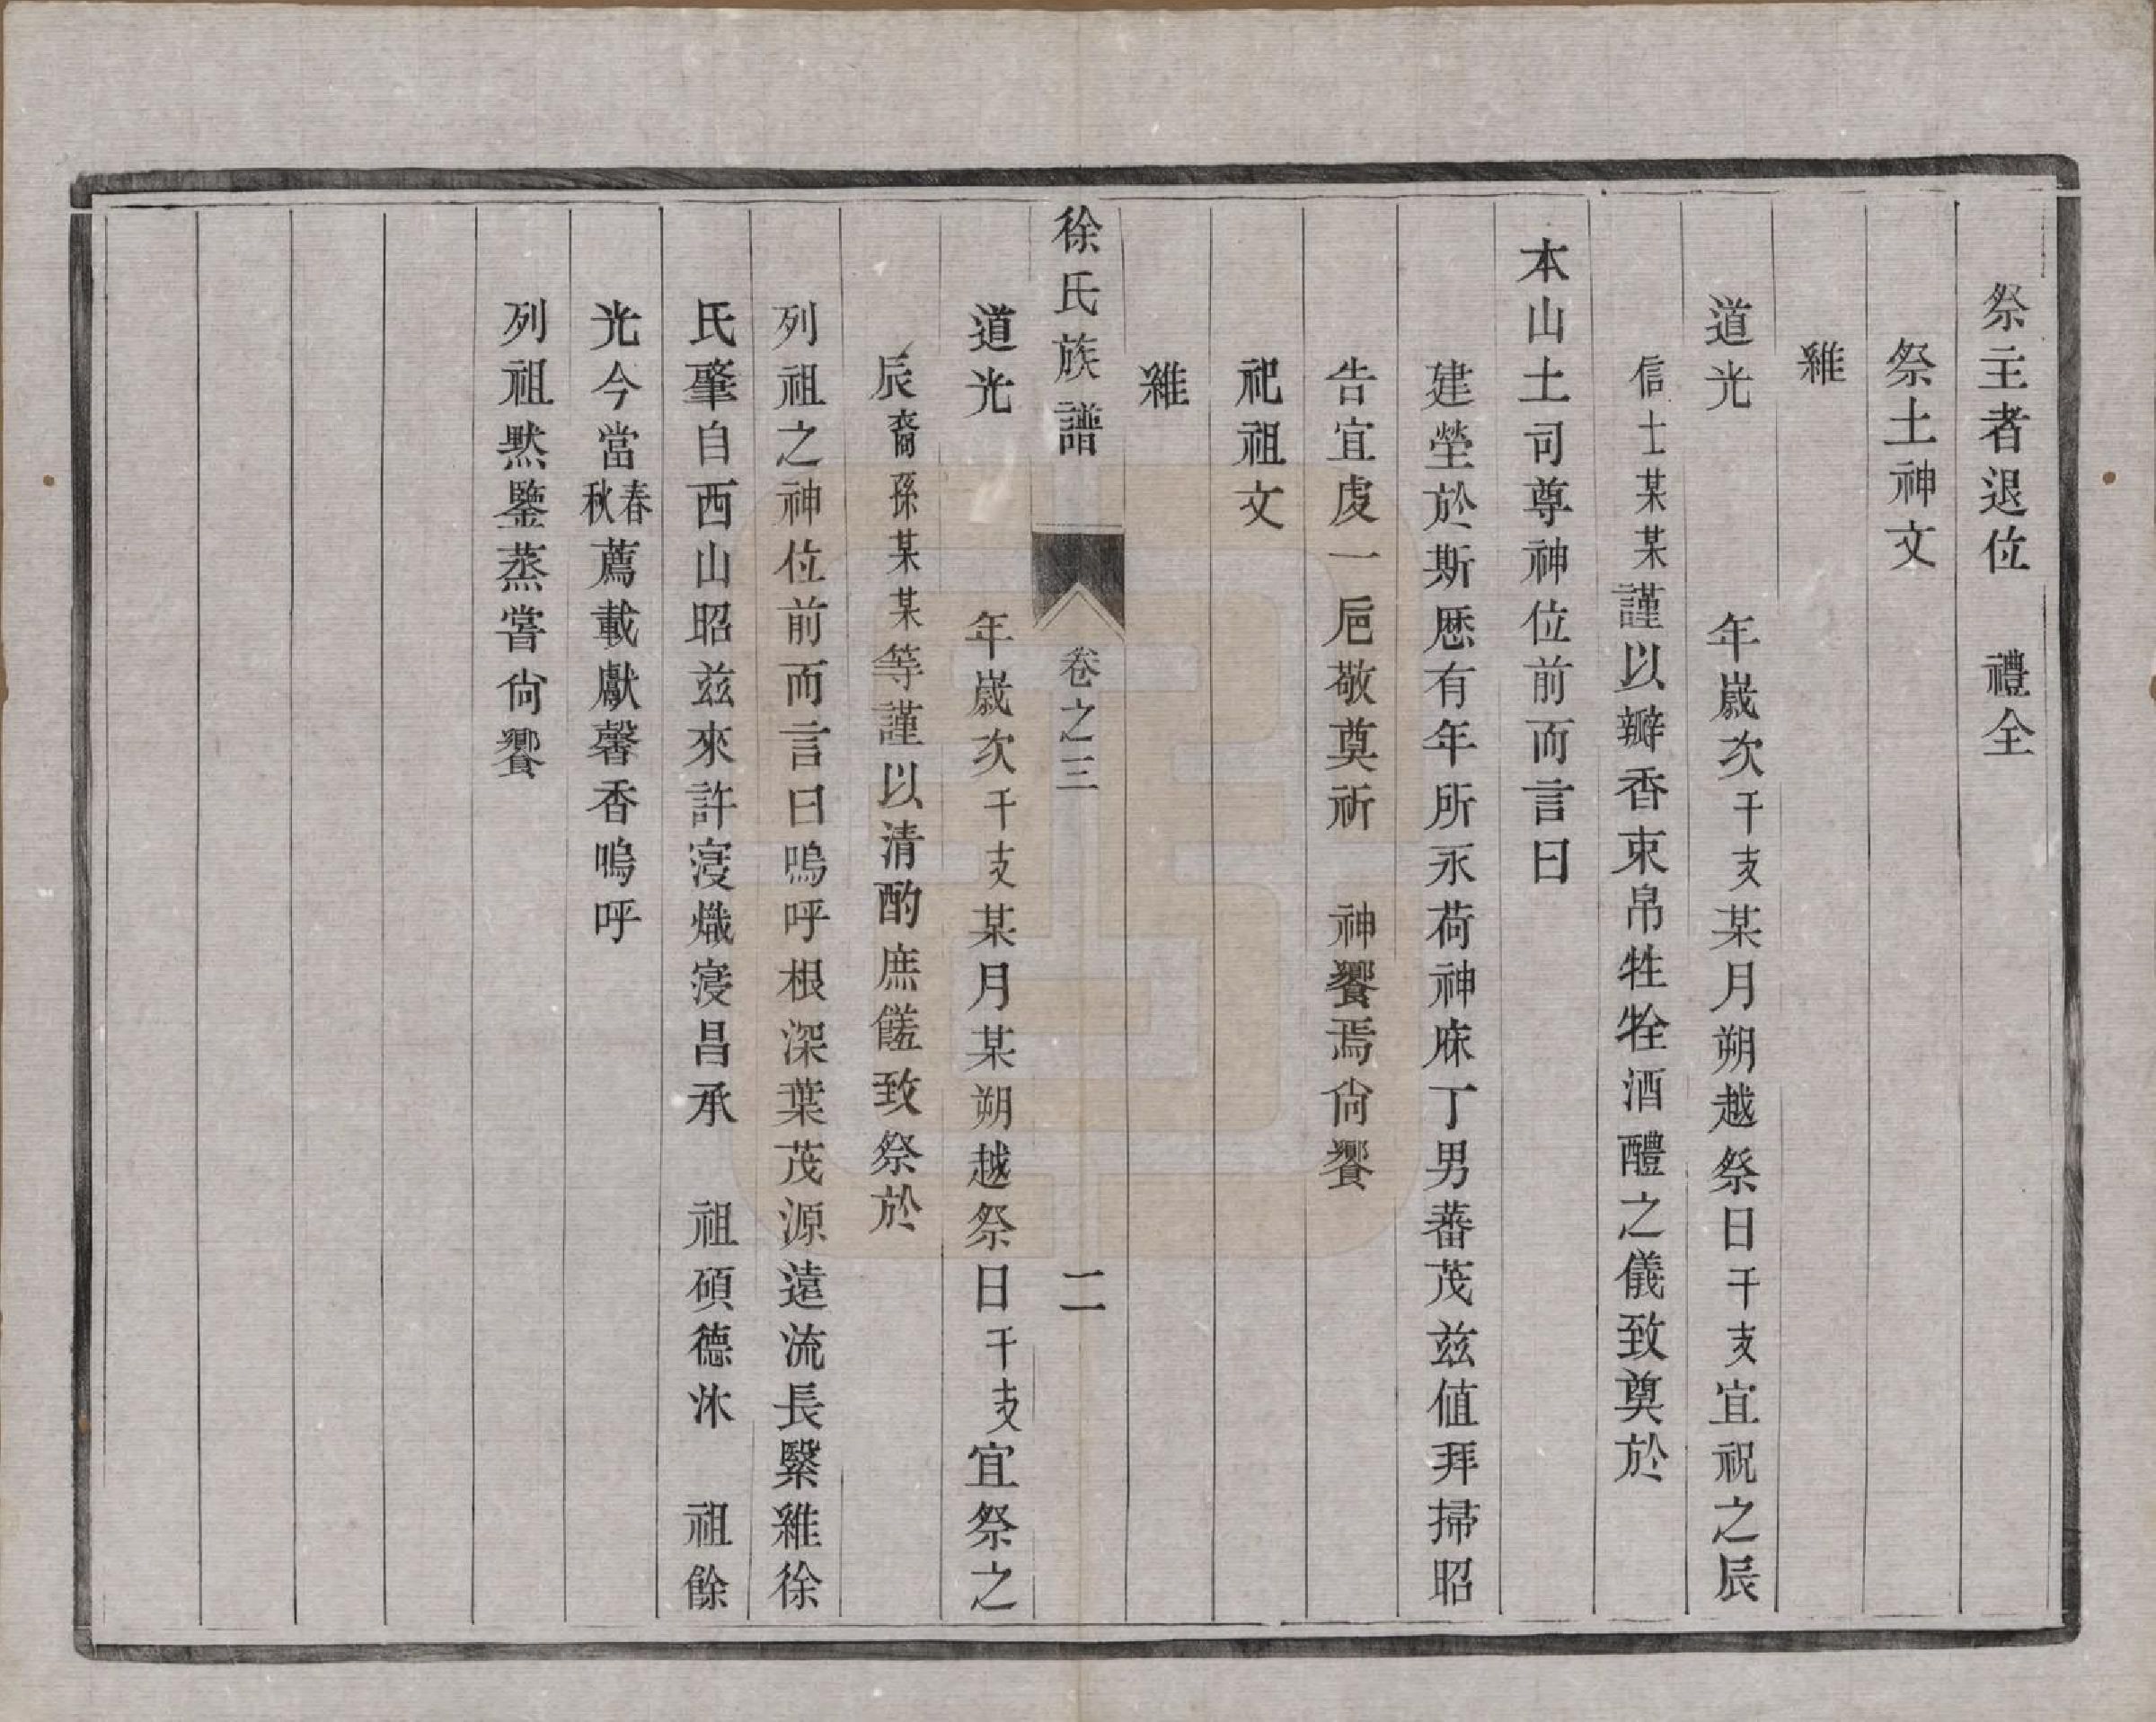 祭主者退位　禮全
祭土神文
維
道光　　　年歲次干支某月朔越祭日干支宜祝之辰
信士某某謹以瓣香束帛牲牷酒醴之儀致奠於
本山土司尊神位前而言曰
建塋於斯歷有年所永荷神庥丁男蕃茂兹值拜掃昭
告宜虔一巵敬奠祈　神饗焉尙饗
祀祖文
維
徐氏族譜　卷之三　二
道光　　　年歲次干支某月某朔越祭日干支宜祭之
辰裔孫某某等謹以清酌庶饈致祭於
列祖之神位前而言曰嗚呼根深葉茂源遠流長繄維徐
氏肇自西山昭兹來許寖熾寖昌承　祖碩德沐　祖餘
光今當春秋薦載獻馨香嗚呼
列祖默鑒蒸嘗尙饗